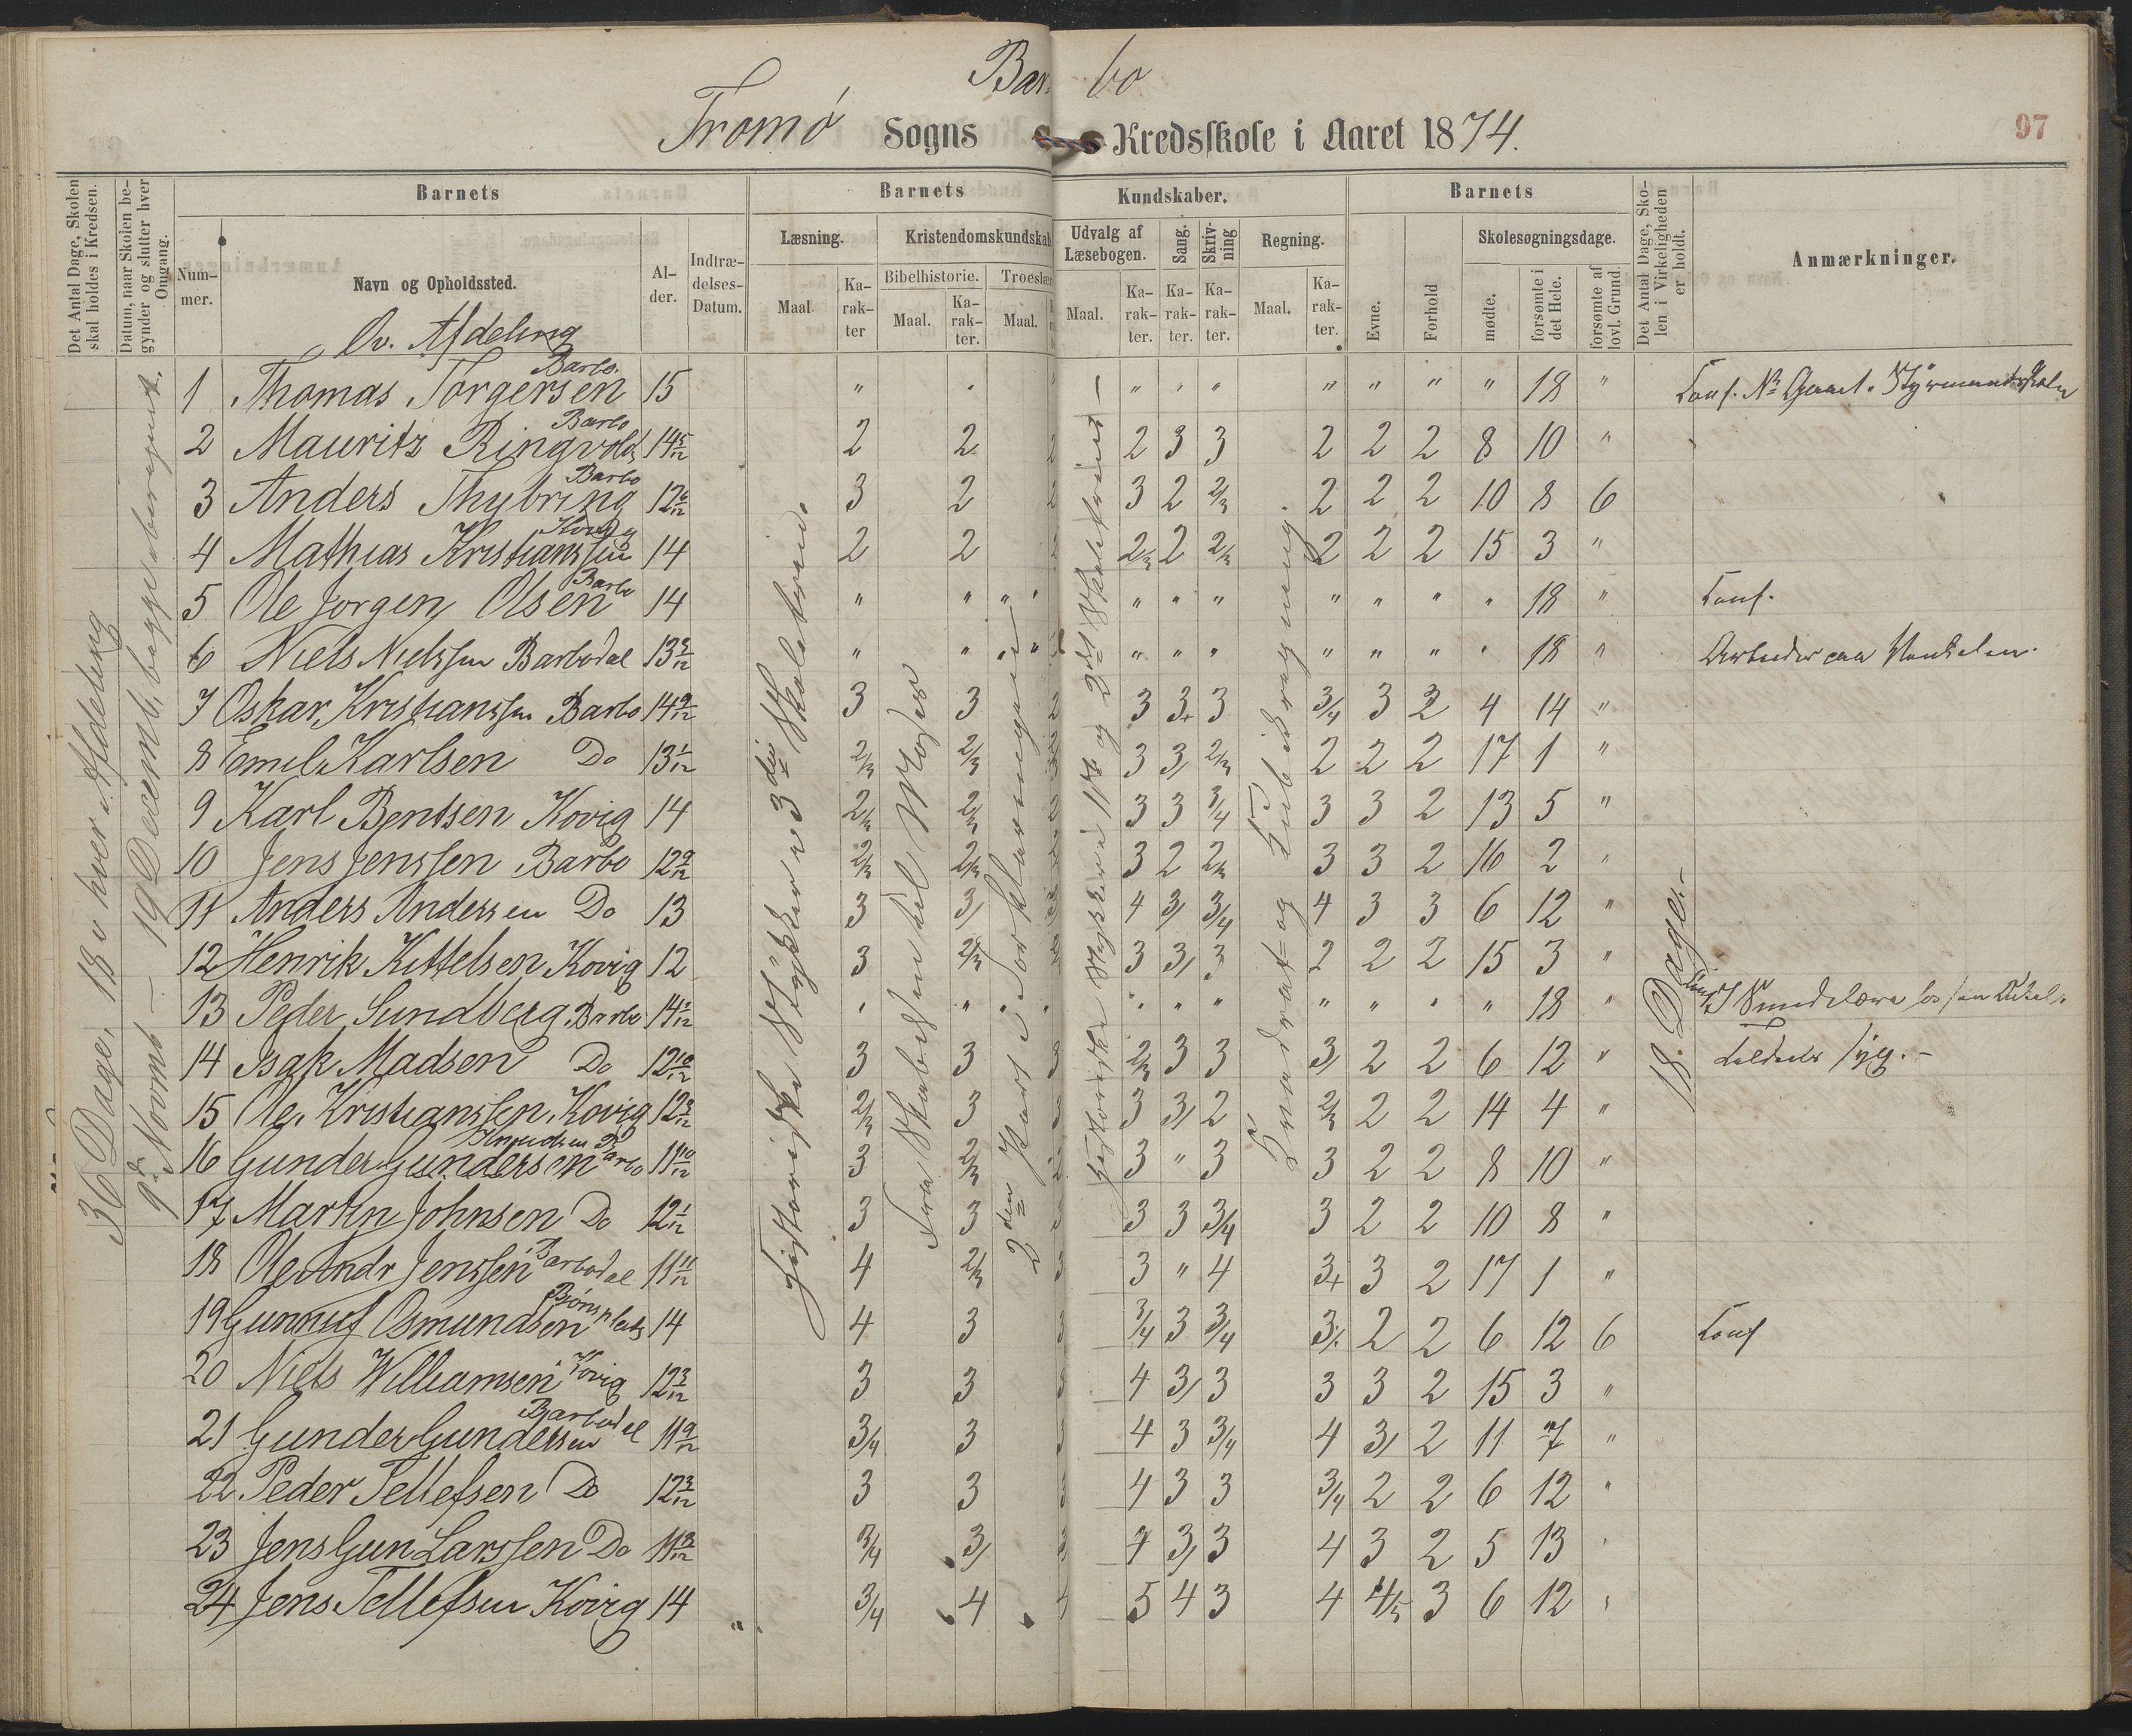 Barbo
Tromø Sogns Kredsskole i Aaret 1874.
97
Det Antal Dage, Skolen skal holdes i Kredsen.
Datum, naar Skolen begynder og slutter hver Omgang.
Barnets
Nummer.
Navn og Opholdssted.
Alder.
Indtrædelses-Datum.
Barnets Kundskaber.
Læsning.
Maal
Karakter
Kristendomskundskab
Bibelhistorie.
Maal.
Karakter.
Troeslære
Maal.
Udvalg af Læsebogen.
Maal.
Karakter.
Sang.
Karakter.
Skrivning
Karakter.
Regning.
Maal.
Karakter.
Barnets
Evne.
Forhold
Skolesøgningsdage.
mødte.
forsømte i det Hele.
forsømte af lovl. Grund.
Det Antal Dage, Skolen i Virkeligheden er holdt.
Anmærkninger.
Øv. Afdeling
36 Dage, 18 i hver Afdeling
9de Novemb. – 19 Decemb. begge iberegnet.
Historiske Stykker i 3die Skoletrin.
Fra Skabelsen til Moses
2den Part i Forklaringen
historiske Stykker i 1ste og 2det Skoletrinet –
Kvadrat- og Kubikregning.
18. Dage. –
1 Thomas Torgersen Barbo. 15 " " " " " " " " 18 "
2 Mauritz Ringvold Barbo 14 5/12 2 2 2 2 3 3 2 2 2 8 10 "
3 Anders Thybring Barbo 12 6/12 3 2 2 3 2 2/3 2 2 2 10 8 6
4 Mathias Kristianssen 14 2 2 2 2/3 2 2/3 2 2 2 15 3 "
5 Ole Jorgen Olsen Barbo 14 " " " " " " " " " " 18 " Conf.
6 Niels Nielssen Barbodal 13 3/12 " " " " " " " " " " 18 " Arbeider paa
7 Oskar Kristianssen Barbo 14 9/12 3 3 2 3 3+ 3 3/4 3 2 4 14 "
8 Emil Karlsen Do 13 1/12 2/3 2/3 3 3/ 2/3 2 2 2 17 1 "
9 Karl Bentsen Kovig 14 2/3 2/3 2 3 3 3/4 3 3 2 13 5 "
10 Jens Jenssen Barbo 12 9/12 2/3 2/3 3 2 2/3 3 3 2 16 2 "
11 Anders Anderssen Do 13 3 3/ 4 3/ 3/4 4 3 3 6 12 "
12 Henrik Kittelsen Kovig 12 3 2/3 3 3/ 3 2 2 2 15 3 "
13 Peder Sundberg Barbo 14 1/12 " " " " " " " " " " 18 "
14 Isak Madsen Do 12 10/12 3 3 3 2/3 3 3 3/ 2 2 6 12 " tildels syg. –
15 Ole Kristianssen Kovig 12 3/12 2/3 3 3 3 3/ 2 2/3 2 2 14 4 "
16 Gunder Gundersen Barbo 11 10/12 3 2/3 2 3 " 3 3 2 2 8 10 "
17 Martin Johnsen Do 12 1/12 3 3 3 3 3 3/4 3 2 2 10 8 "
18 Ole Andr Jenssen Barbodal 11 11/12 4 2/3 3 3 " 4 3+ 3 2 17 1 "
19 Gunnuf Osmundsen Bjönsplads 14 4 3 3 3/4 3 3/4 3/. 2 2 6 12 6 Conf
20 Niels Williamsen Kovig 12 3/12 3 3 3 4 3/ 3 3 3 2 15 3 "
21 Gunder Gunderssen Barbodal 11 9/12 3/4 3 3 4 3 3/4 4 3/ 2 11 7 "
22 Peder Tellefsen Do 12 3/12 3 3 3 4 3 3 3/4 2 2 6 12 "
23 Jens Gun Larssen Do 11 3/12 3/4 3/ 3 4 3/ 3 4 3 2 5 13 "
24 Jens Tellefsen Kovig 14 3/4 4 4 5 4 3 4 4/5 3 6 12 "